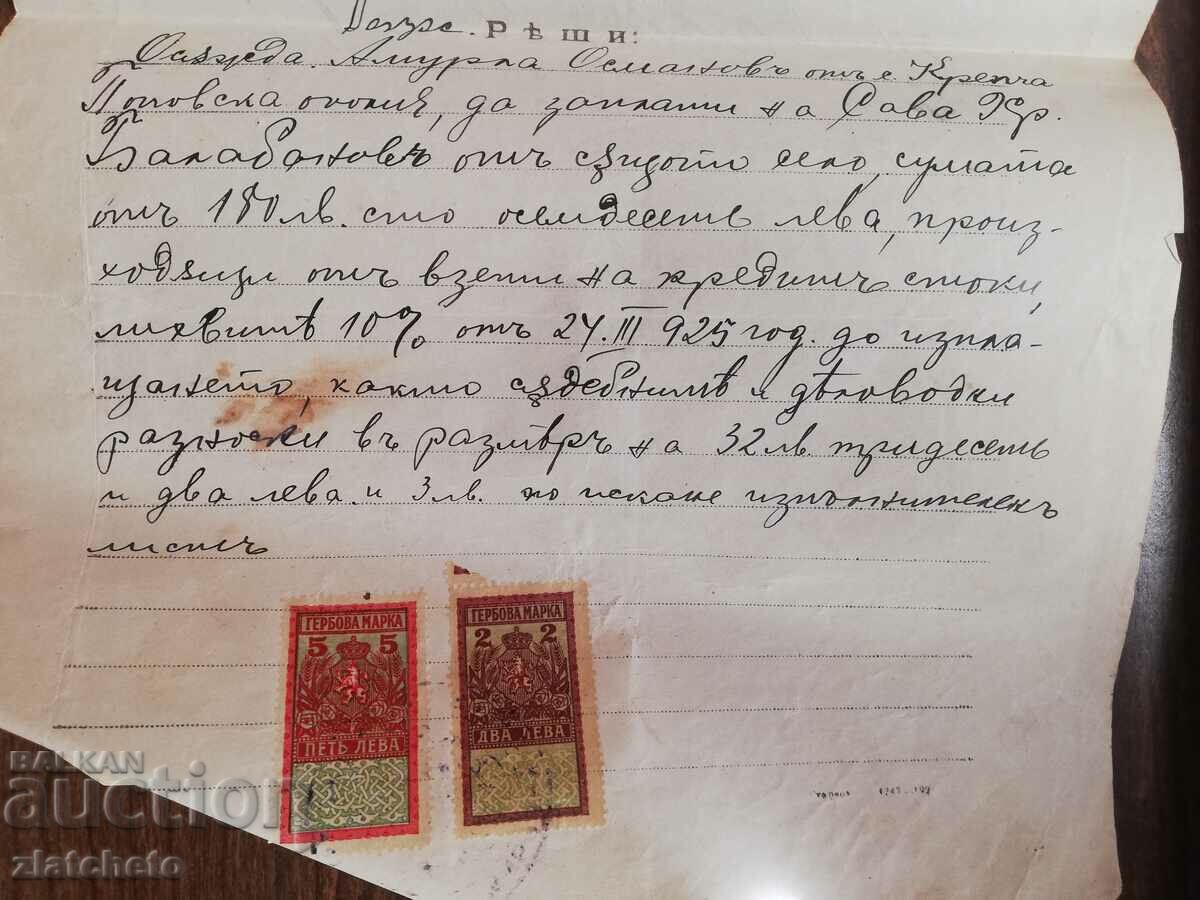 РѢШИ:
Осѫжда Амурла Османовъ отъ с. Крепча
Поповска околия, да заплати на Сава Хр.
Балабановъ отъ сѫщото село, сумата
отъ 180 лв. сто осемдесеть лева, произ-
ходящи отъ взети на кредитъ стоки,
лихвитѣ 10% отъ 24.III 925 год. до изпла-
щането, както сѫдебнитѣ и дѣловодни
разноски въ размѣръ на 32 лв. тридесеть
и два лева и 3 лв. по искане изпълнителенъ
листъ
ГЕРБОВА МАРКА ГЕРБОВА МАРКА
5 5 2 2
ПЕТЬ ЛЕВА ДВА ЛЕВА
BALKAN
auction
zlatcheto